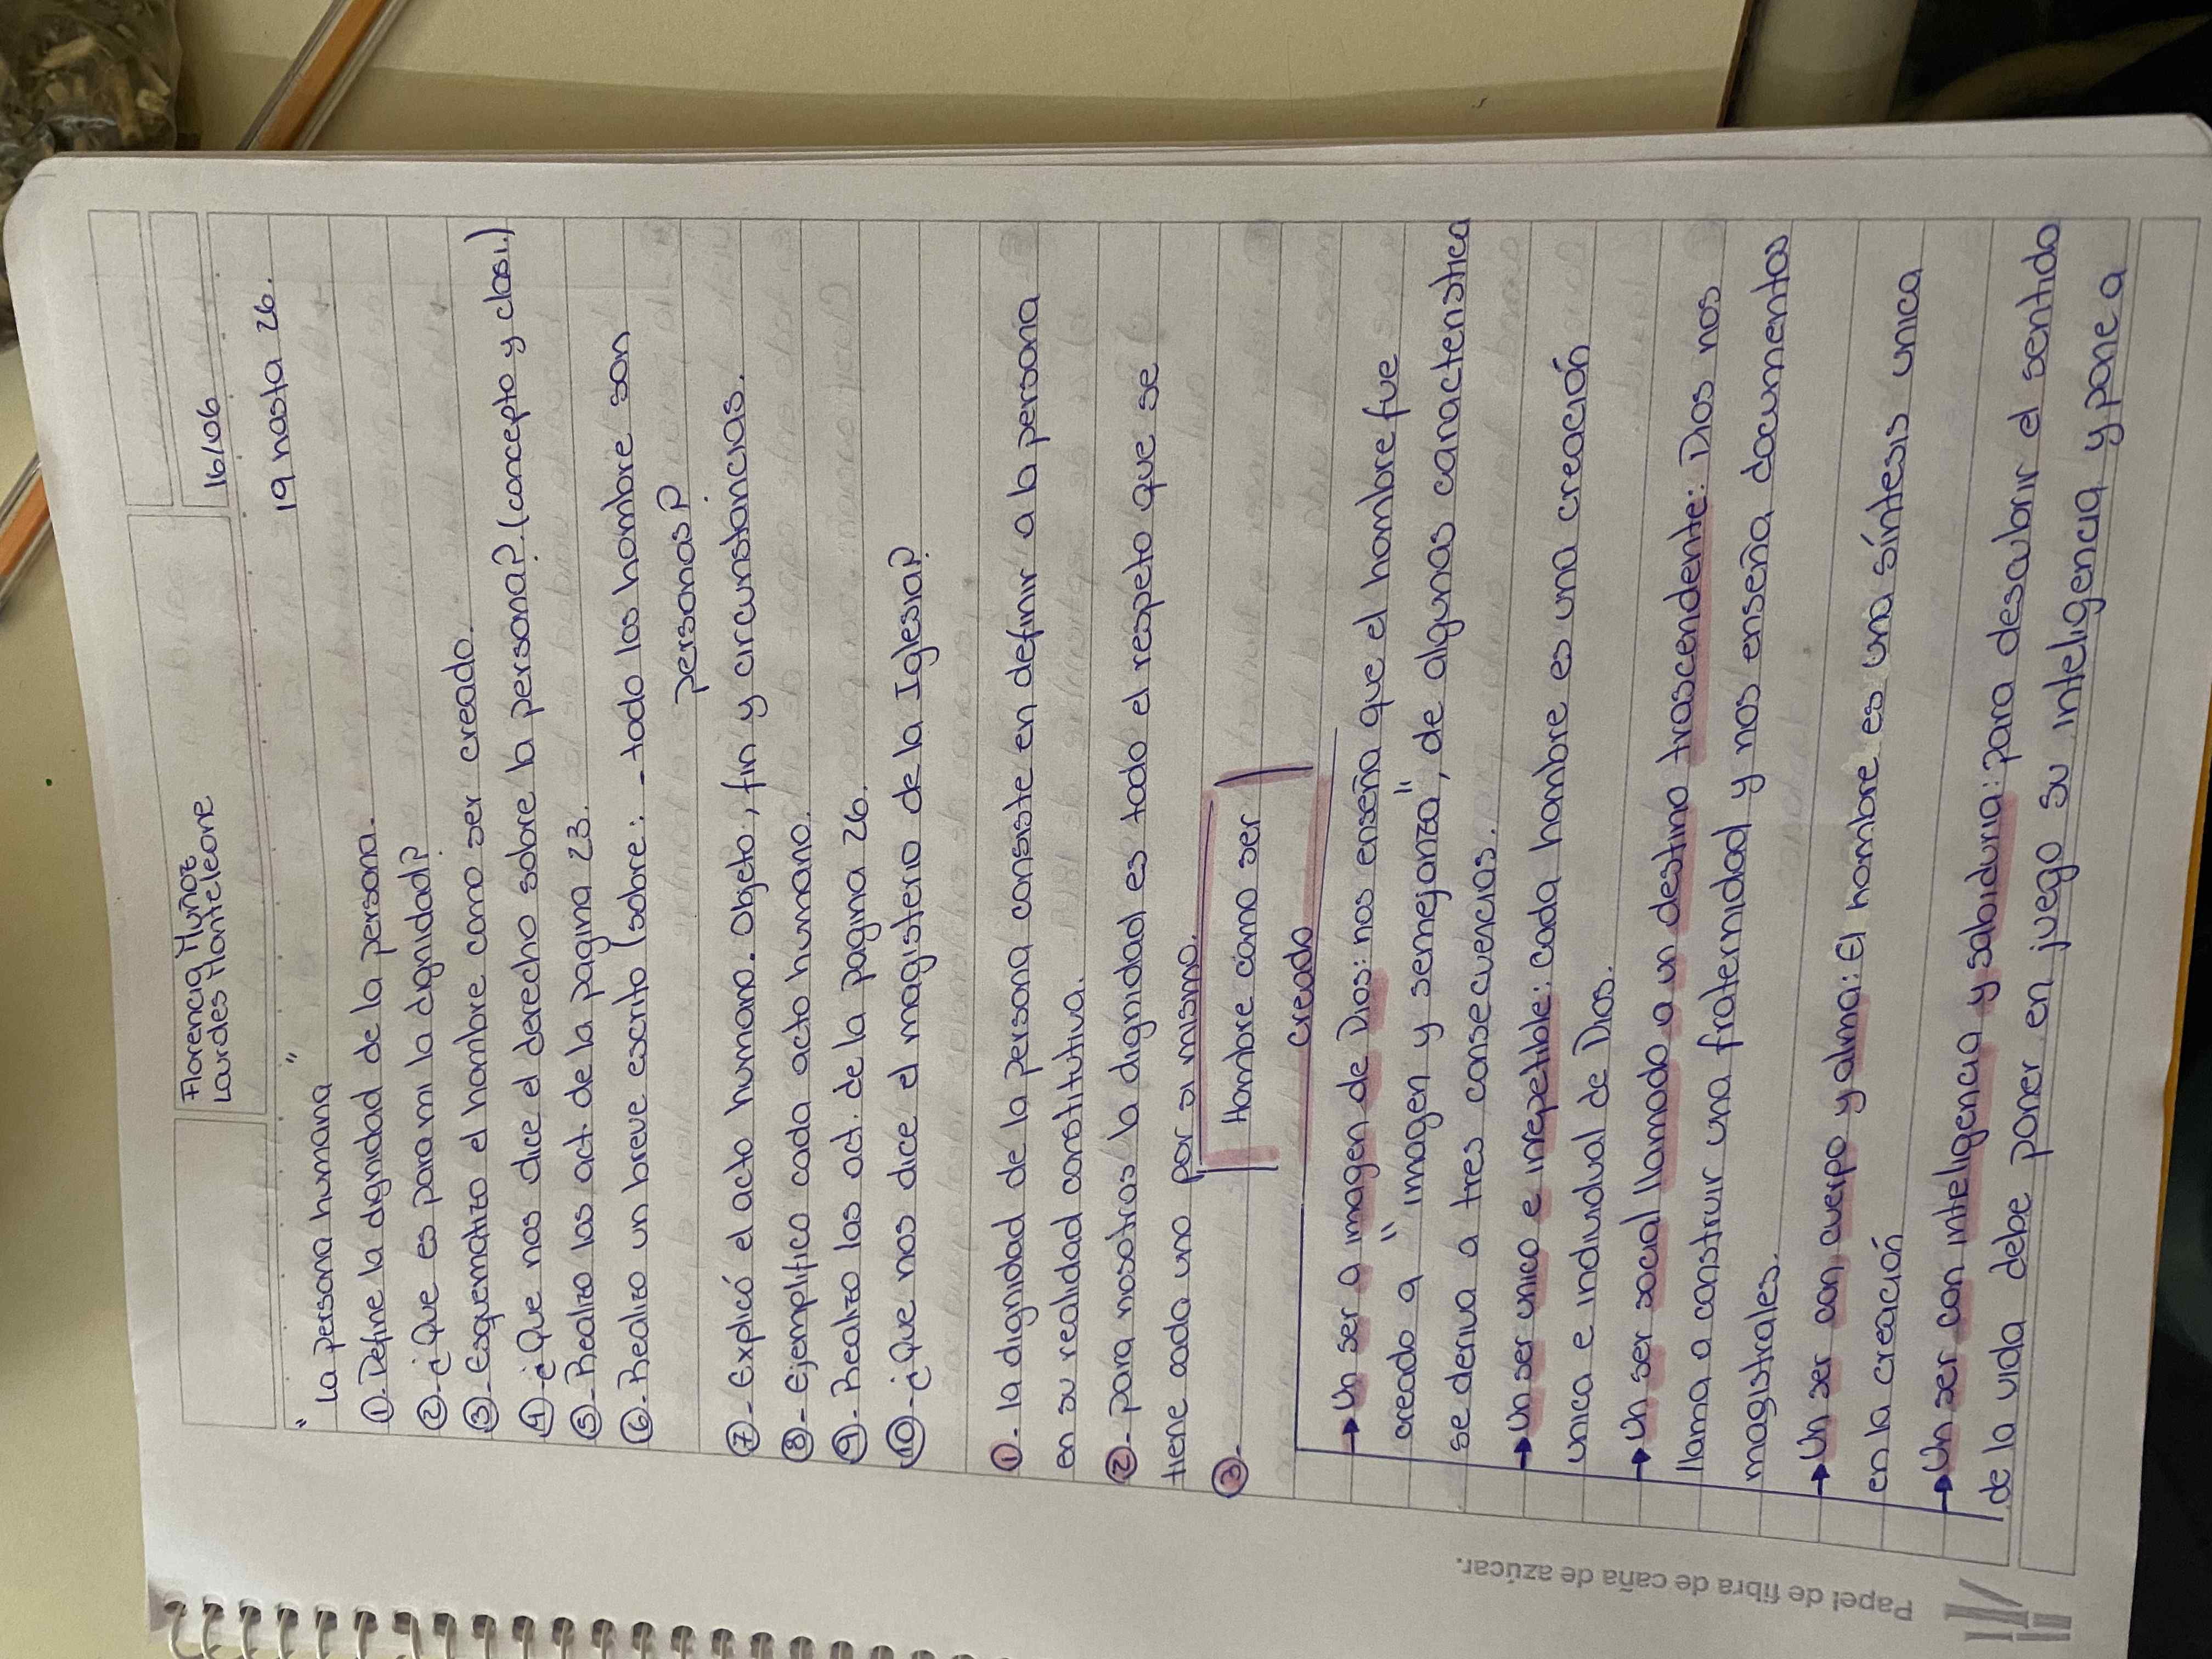 Florencia Muñoz
Lourdes Monteleone
16/06
19 hasta 26.
" La persona humana "
①- Define la dignidad de la persona.
②- ¿Que es para mi la dignidad?
③- Esquematizo el hombre como ser creado.
④- ¿Que nos dice el derecho sobre la persona?. (concepto y clasi.)
⑤- Realizo los act. de la pagina 23.
⑥- Realizo un breve escrito (sobre: - todo los hombre son
personas?
⑦- Explicó el acto humano. Objeto, fin y circunstancias.
⑧- Ejemplifico cada acto humano.
⑨- Realizo los act. de la pagina 26.
⑩- ¿Que nos dice el magisterio de la Iglesia?
①- la dignidad de la persona consiste en definir a la persona
en su realidad constitutiva.
②- para nosotros la dignidad es todo el respeto que se
tiene cada uno por si mismo.
③-
Hombre como ser
creado
→ Un ser a imagen de Dios: nos enseña que el hombre fue
creado a " imagen y semejanza", de algunas caracteristica
se deriva a tres consecuencias.
→ Un ser unico e irrepetible: cada hombre es una creación
unica e individual de Dios.
→ Un ser social llamado a un destino trascendente: Dios nos
llama a construir una fraternidad y nos enseña documentos
magistrales.
→ Un ser con cuerpo y alma: El hombre es una síntesis unica
en la creación
→ Un ser con inteligencia y sabiduria: para descubrir el sentido
de la vida debe poner en juego su inteligencia y pone a
Papel de fibra de caña de azúcar.